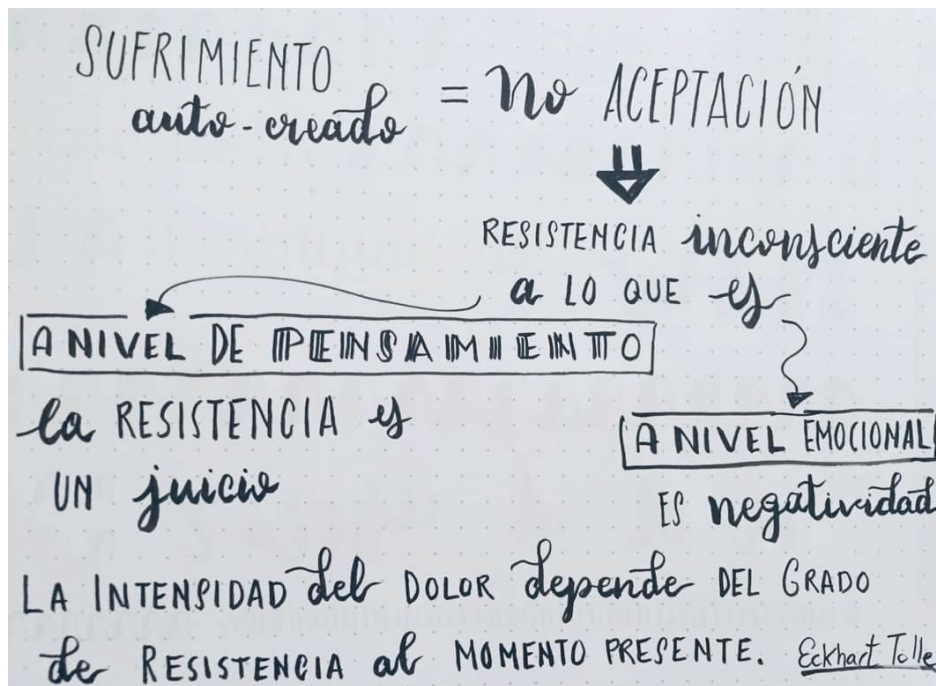 SUFRIMIENTO
auto-creado = No ACEPTACIÓN
RESISTENCIA inconsciente
a LO QUE es
A NIVEL DE PENSAMIENTO
la RESISTENCIA es
UN juicio
A NIVEL EMOCIONAL
ES negatividad
LA INTENSIDAD del DOLOR depende DEL GRADO
de RESISTENCIA al MOMENTO PRESENTE. Eckhart Tolle